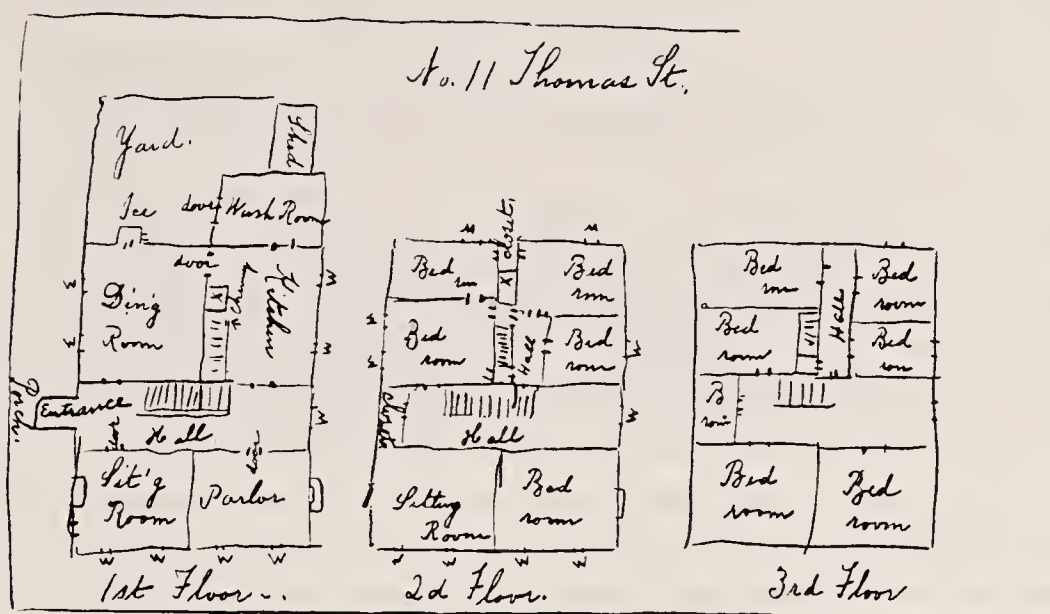 No. 11 Thomas St.
Yard.
Shed
Ice
door
Wash Room
door
Din'g
Room
Kitchen
Porch.
Entrance
door
Hall
door
Sit'g
Room
Parlor
W
W
W
W
W
W
W
W
W
1st Floor
closet
W
W
Bed
rm
X
Bed
rm
Bed
room
Hall
Bed
room
W
W
W
W
closet
Hall
Sitting
Room
Bed
room
W
W
W
W
2d Floor.
Bed
rm
Hall
Bed
room
Bed
room
Bed
rom
B
room
Bed
room
Bed
room
3rd Floor